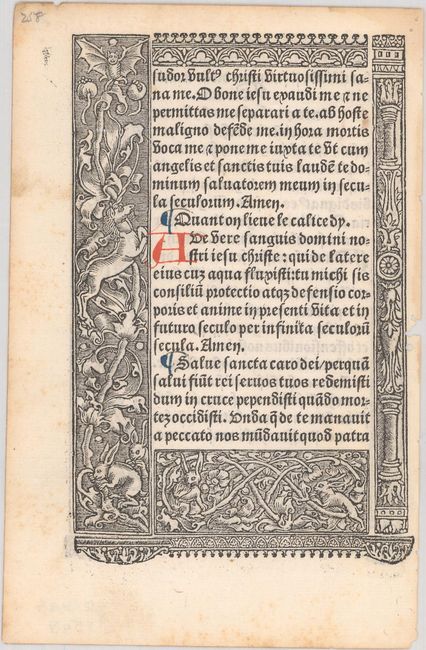 258
sudor vultꝰ christi virtuosissimi sa-
na me. O bone iesu exaudi me ⁊ ne
permittas me separari a te. ab hoste
maligno defēde me. in hora mortis
voca me ⁊ pone me iuxta te vt cum
angelis et sanctis tuis laudē te do-
minum saluatorem meum in secu-
la seculorum. Amen.
¶ Quant on lieue le calice dy.
AVe vere sanguis domini no-
stri iesu christe: qui de latere
eius cuʒ aqua fluxisti: tu michi sis
consiliū protectio atqʒ defensio cor-
poris et anime in presenti vita et in
futuro seculo per infinita seculorū
secula. Amen.
¶ Salue sancta caro dei / per quā
salui fiūt rei seruos tuos redemisti
dum in cruce pependisti quādo mor-
teʒ occidisti. Unda q̄ de te manauit
a peccato nos mūdauit quod patra